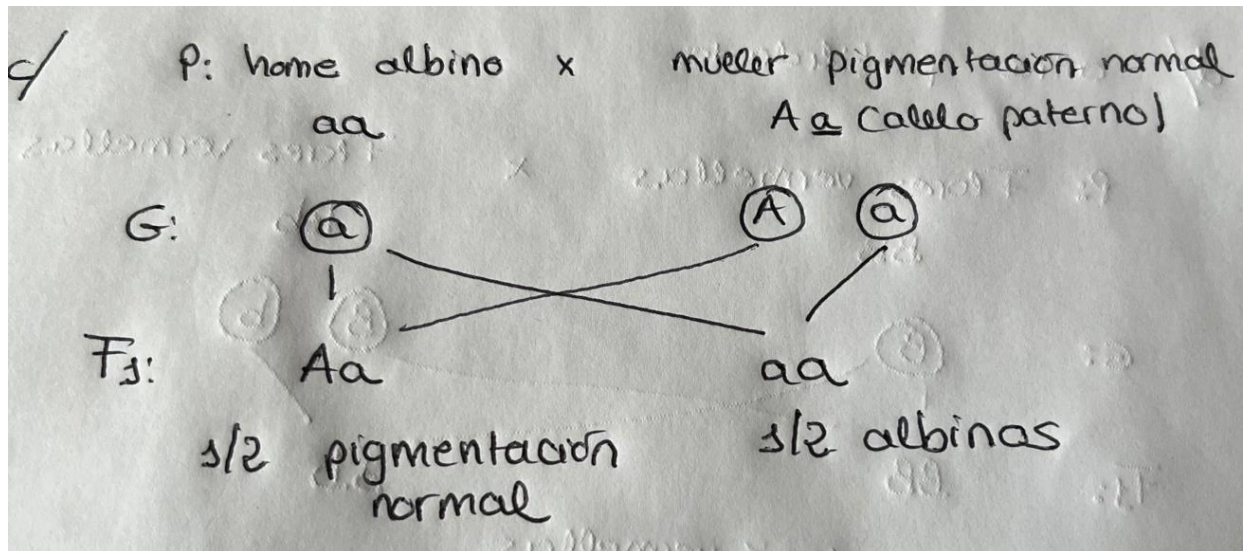 c/ P: home albino x muller pigmentación normal
aa Aa (alelo paterno)
G: a A a
F1: Aa aa
1/2 pigmentación 1/2 albinos
normal